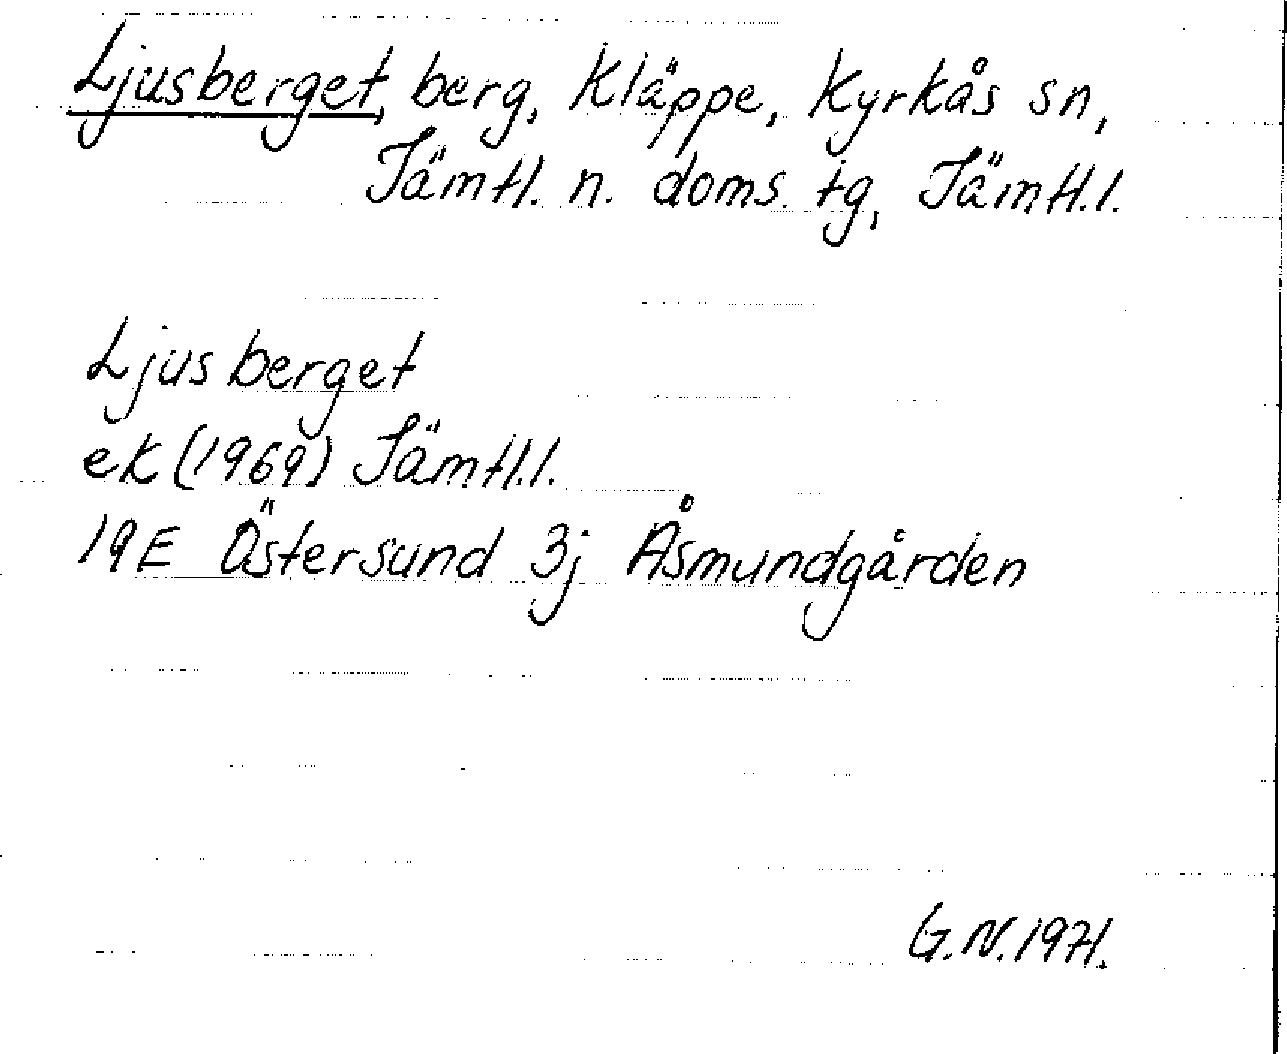 Ljusberget, berg, Kläppe, Kyrkås sn,
Jämtl. n. doms. tg, Jämtl.l.
Ljusberget
ek (1969) Jämtl.l.
19E Östersund 3j Åsmundgården
G.N.1971.